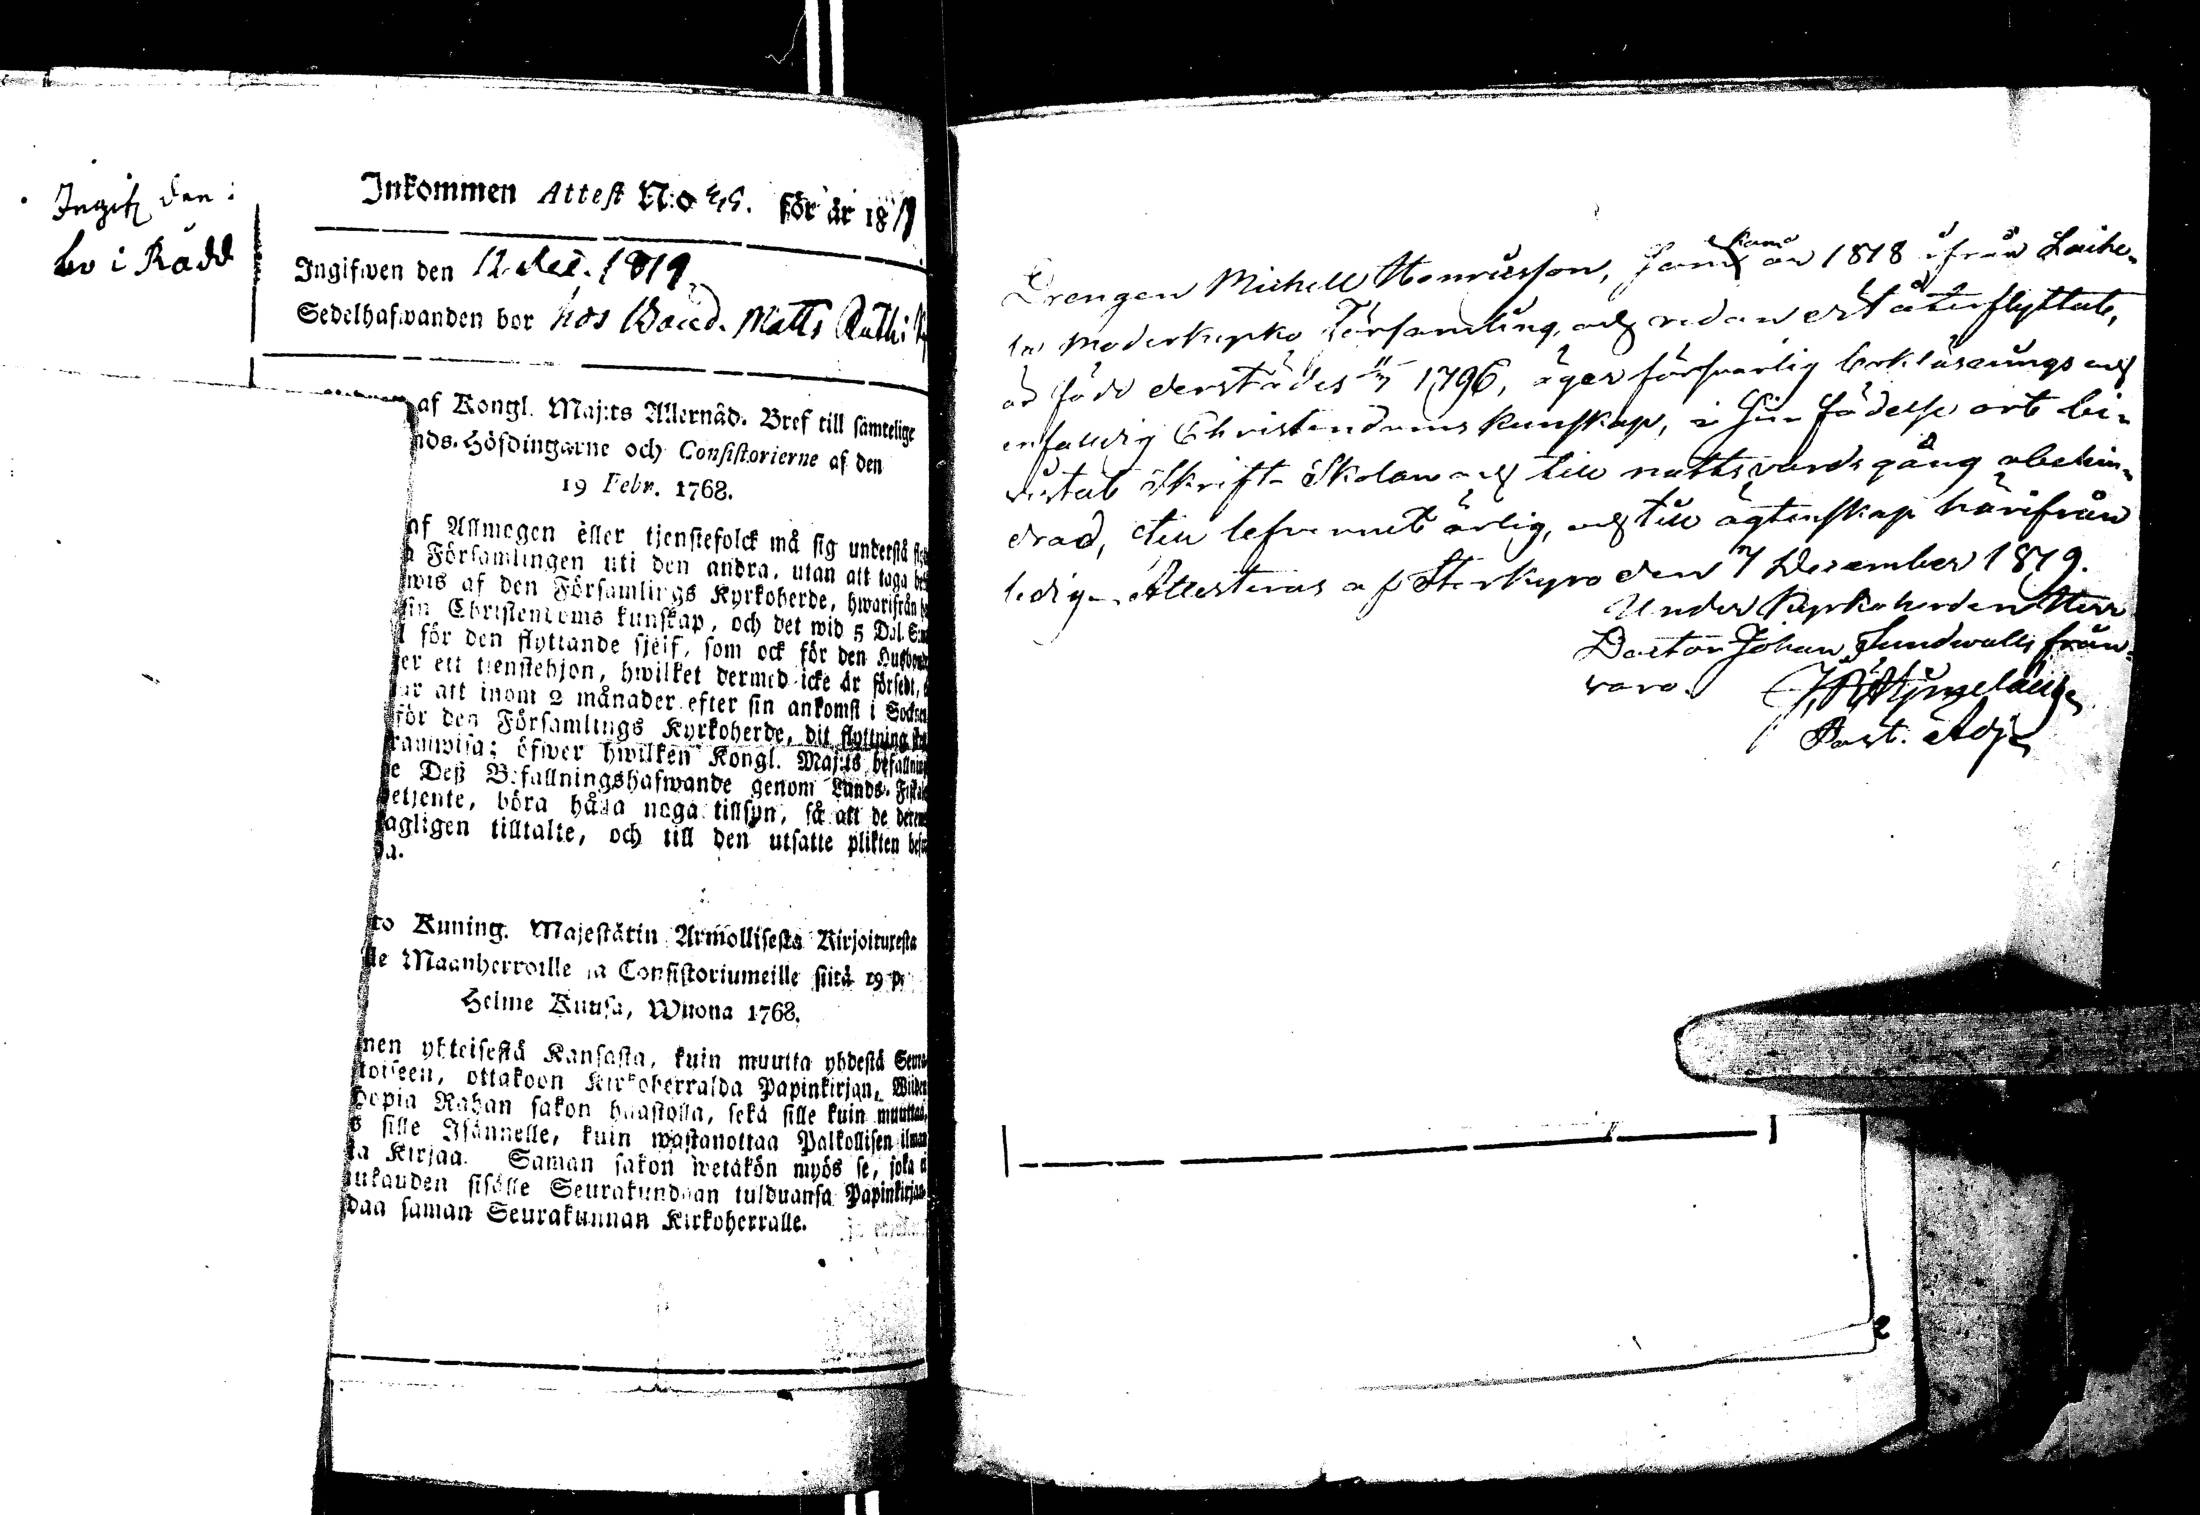 Ingif den
bo i Rädd
Inkommen Attest N:o för år 18
Ingifwen den 12 dec. 1819
Sedelhafwanden bor hos Bond. Matts
af Kongl. Maj:ts Allernåd. Bref till samtelige
nds-Höfdingarne och Consistorierne af den
19 Febr. 1768.
af Allmogen eller tjenstefolck må sig understå
Församlingen uti den andra, utan att taga
wis af den Församlings Kyrkoherde, hwarifrån
sin Christendoms kunskap, och det wid 5 Dal.
för den flyttande sjelf, som ock för den Husbonde
er ett tjenstehjon, hwilket dermed icke är försedt,
ar att inom 2 månader efter sin ankomst i Socknen
för den Församlings Kyrkoherde, dit flyttning
ramwisa: öfwer hwilken Kongl. Maj:ts befallning
e Deß Befallningshafwande genom Lands-Fiskale
betjente, böra hålla noga tillsyn, så att de
lagligen tilltalte, och till den utsatte plikten
da.
to Kuning. Majestätin Armollisesta Kirjoituxesta
lle Maanherroille ja Consistoriumeille siitä 19 p.
Helme Kuusa, Wuona 1768.
nen yhteisestä Kansasta, kuin muutta yhdestä
toiseen, ottakoon Kirkoherralda Papinkirjan,
hopia Rahan sakon haastolla, sekä sille kuin muuttaa,
s sille Isännelle, kuin wastanottaa Palkollisen ilman
ta Kirjaa. Saman sakon wetäkön myös se, joka ei
kukauden sisälle Seurakundaan tulduansa Papinkirjaa
daa saman Seurakunnan Kirkoherralle.
Drengen Michell Henricsson, som kom år 1818 ifrån Laihe-
la Moderkyrko Församling, och redan dit återflyttat,
är född derstädes 1796, äger försvarlig bok läsnings och
enfaldig Christendoms kunskap, i sin födelse ort bi-
vistat Skrift-Skolan och till nattvards gång obehin-
drad, till lefvernet ärlig, och till ägtenskap härifrån
ledig. Attesteras af Storkyro den 7 December 1819.
Under Kyrkoherden Herr
Doctor Johan Sundwalls från-
varo.
Past. Adj.